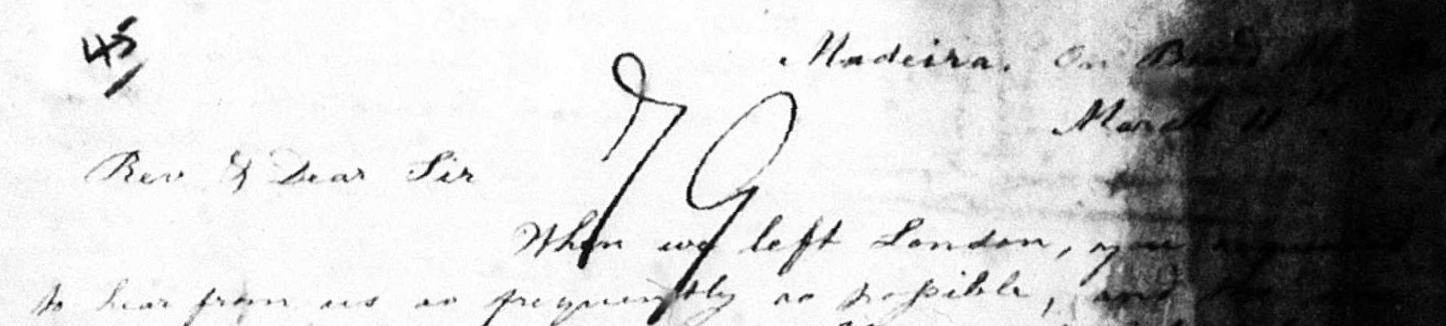 45
Madeira. On Board the
79
March 11
Rev & Dear Sir
When we left London, you requested
to hear from us as frequently as possible, and the